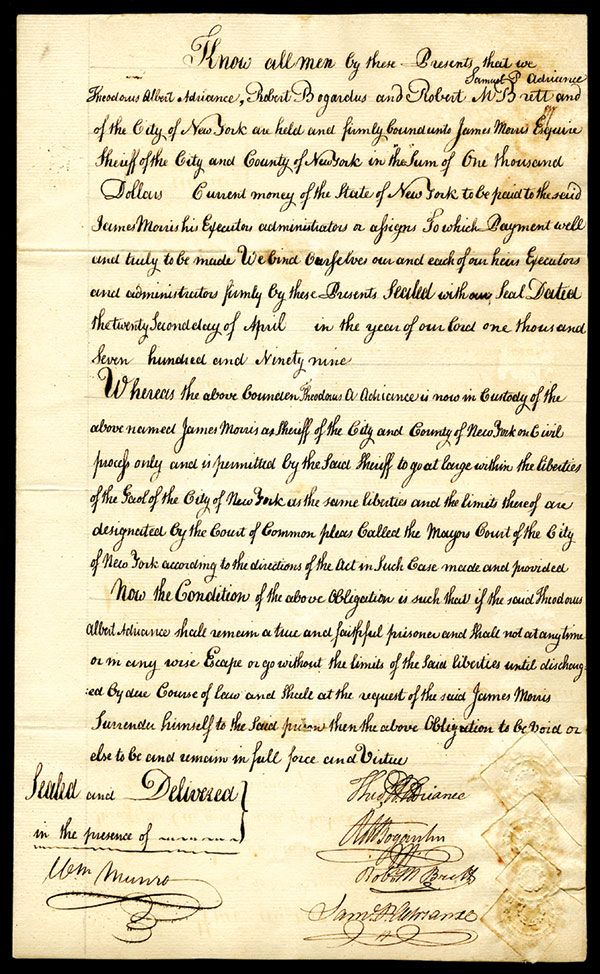 Know all men by these Presents, that we
Samuel P Adriance
Theodorus Albert Adriance, Robert Bogardus and Robert M Brett and
of the City of New York are held and firmly bound unto James Morris Esquire
Sheriff of the City and County of New York in "the" Sum of One thousand
Dollars Current money of the State of New York to be paid to the said
James Morris his Executors administrators or assigns To which Payment well
and truly to be made We bind Ourselves our and each of our heirs Executors
and administrators firmly by these Presents Sealed with our Seal Dated
the twenty Second day of April in the year of our Lord one thousand
Seven hundred and Ninety nine
Whereas the above bounden Theodorus A Adriance is now in Custody of the
above named James Morris as Sheriff of the City and County of New York on Civil
process only and is permitted by the Said Sheriff to go at large within the liberties
of the Gaol of the City of New York as the same liberties and the limits thereof are
designated by the Court of Common pleas Called the Mayors Court of the City
of New York according to the directions of the Act in Such Case made and provided
Now the Condition of the above Obligation is such that if the said Theodorus
Albert Adriance shall remain a true and faithful prisoner and Shall not at any time
or in any wise Escape or go without the limits of the Said liberties until discharg
:ed by due Course of law and Shall at the request of the said James Morris
Surrender himself to the Said prison then the above Obligation to be Void or
else to be and remain in full force and Virtue
Sealed and Delivered
in the presence of
Wm Munro
Theo A Adriance
Rt Bogardus
Robt M Brett
Saml P Adriance